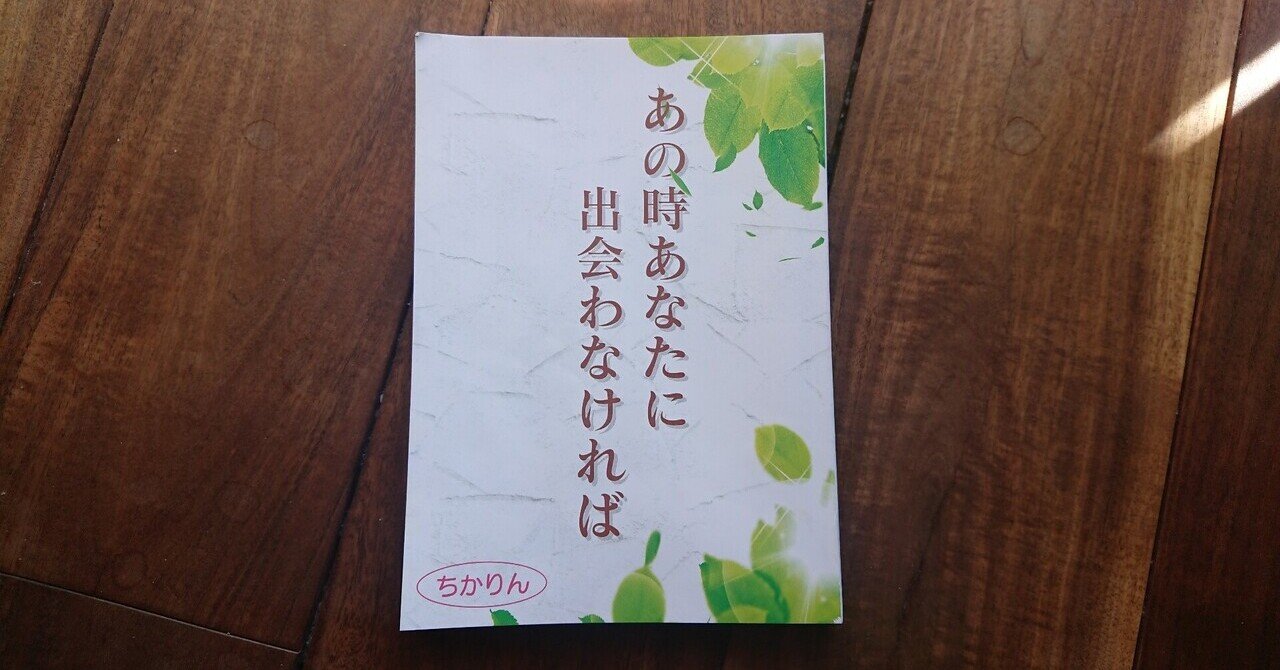 あの時あなたに
出会わなければ
ちかりん